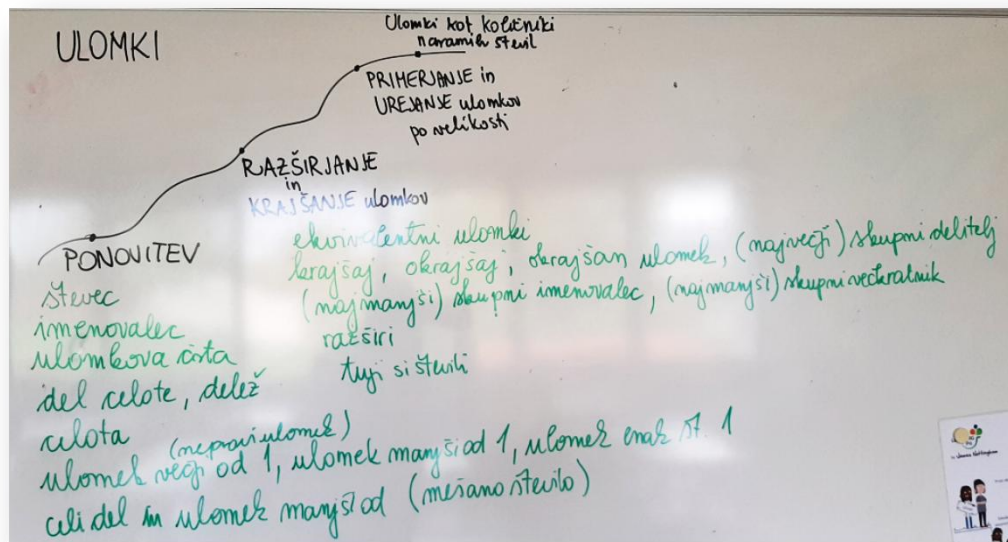 ULOMKI
Ulomki kot količniki
naravnih števil
PRIMERJANJE in
UREJANJE ulomkov
po velikosti
RAZŠIRJANJE
in
KRAJŠANJE ulomkov
PONOVITEV
števec
imenovalec
ulomkova črta
del celote, delež
celota
(nepravi ulomek)
ulomek večji od 1, ulomek manjši od 1, ulomek enak št. 1
celi del in ulomek manjši od (mešano število)
ekvivalentni ulomki
krajšaj, okrajšaj, okrajšan ulomek, (največji) skupni delitelj
(najmanjši) skupni imenovalec, (najmanjši) skupni večkratnik
razširi
tuji si števili